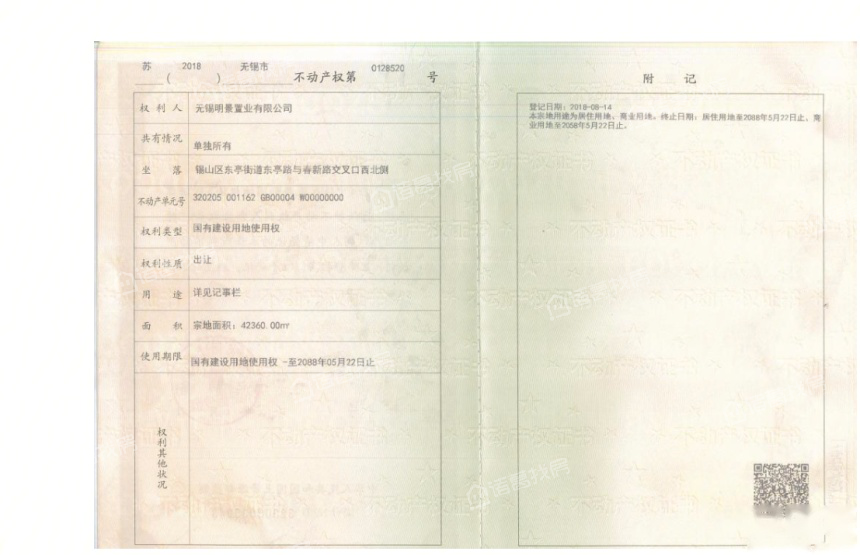 苏 2018 无锡市 0128520
( ) 不动产权第 号
权利人 无锡明景置业有限公司
共有情况 单独所有
坐落 锡山区东亭街道东亭路与春新路交叉口西北侧
不动产单元号 320205 001162 GB00004 W00000000
权利类型 国有建设用地使用权
权利性质 出让
用途 详见记事栏
面积 宗地面积：42360.00㎡
使用期限 国有建设用地使用权 -至2088年05月22日止
权利其他状况
附记
登记日期：2018-08-14
本宗地用途为居住用地、商业用地。终止日期：居住用地至2088年5月22日止、商
业用地至2058年5月22日止。